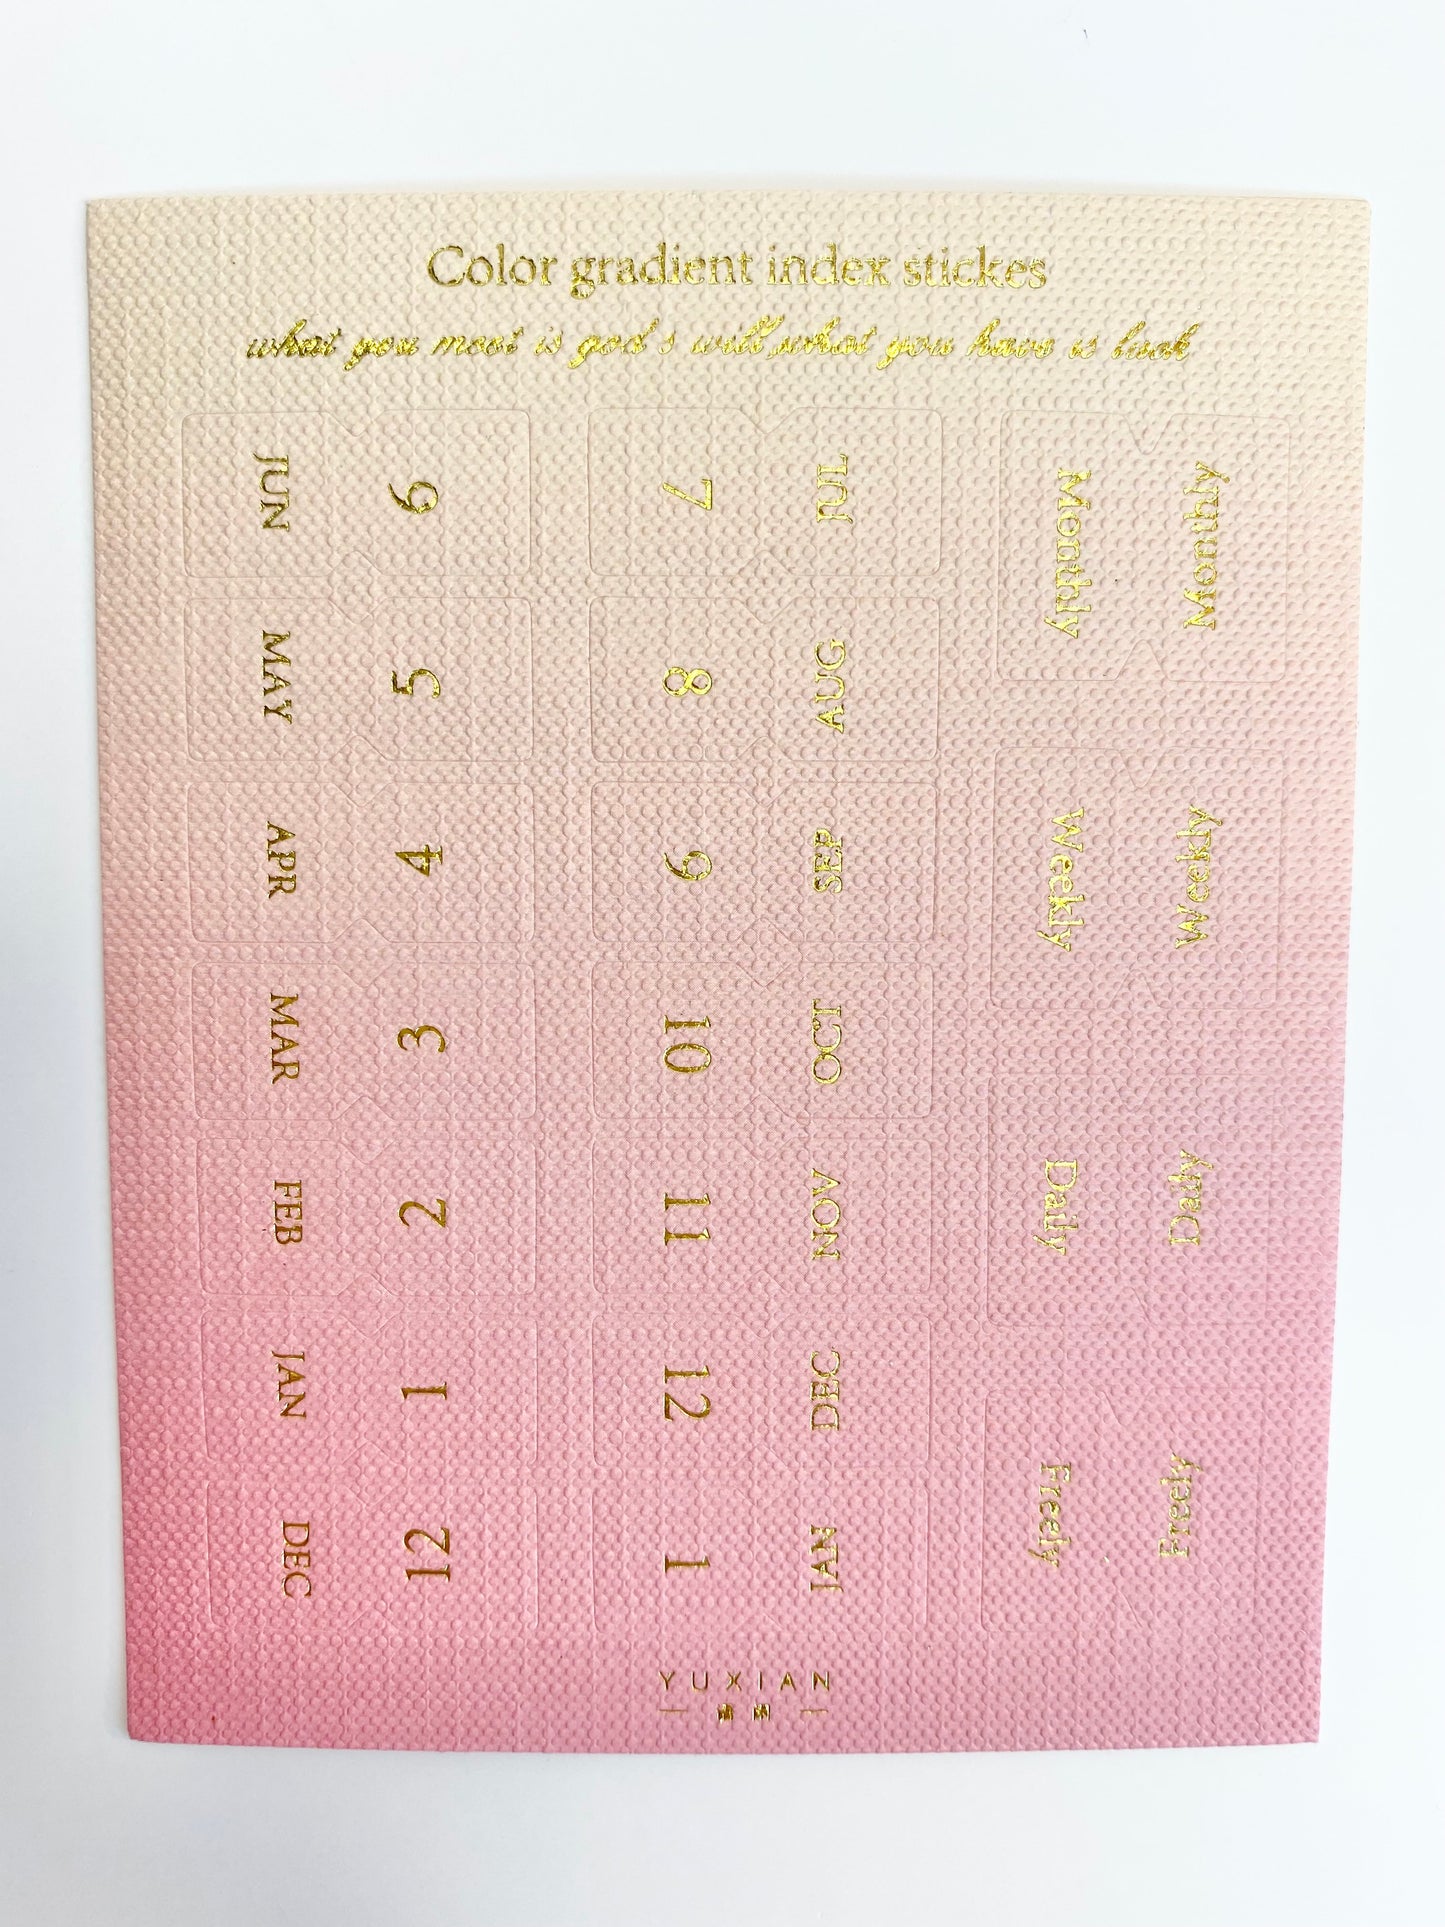 Color gradient index stickes
what you meet is god's will,what you have is luck
JUN 6
7 JUL
Monthly Monthly
MAY 5
8 AUG
APR 4
9 SEP
Weekly Weekly
MAR 3
10 OCT
FEB 2
11 NOV
Daily Daily
JAN 1
12 DEC
DEC 12
1 JAN
Freely Freely
YUXIAN